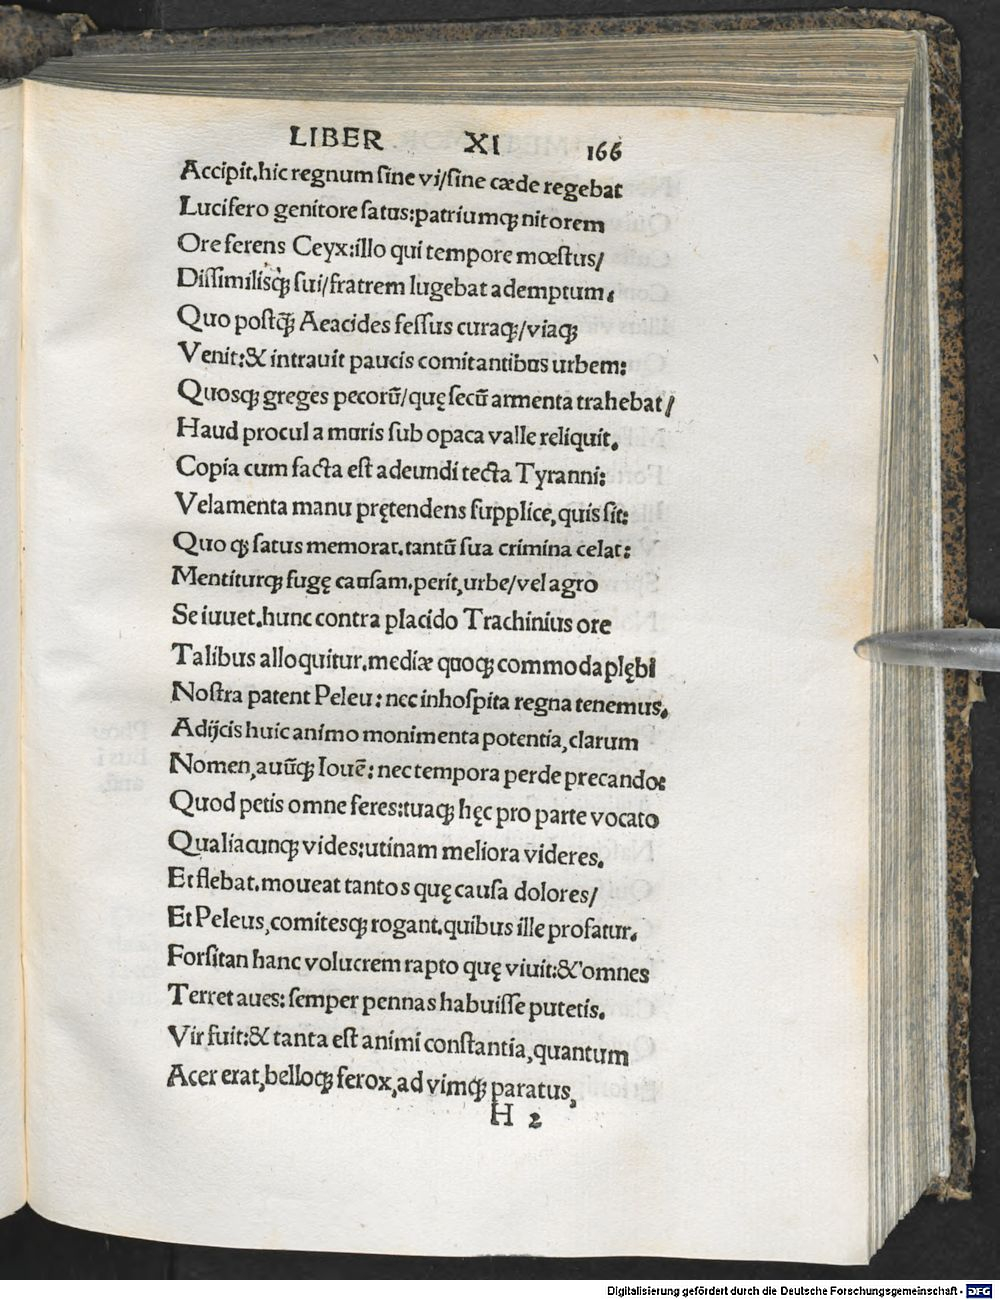 LIBER XI 166
Accipit.hic regnum ſine vi/ſine cæde regebat
Lucifero genitore ſatus:patriumqꝫ nitorem
Ore ferens Ceyx:illo qui tempore mœſtus/
Diſſimilisqꝫ ſui/fratrem lugebat ademptum.
Quo poſtq̃ꝫ Aeacides feſſus curaqꝫ/viaqꝫ
Venit:& intrauit paucis comitantibus urbem:
Quosqꝫ greges pecorū/quę ſecū armenta trahebat/
Haud procul a muris ſub opaca valle reliquit.
Copia cum facta eſt adeundi tecta Tyranni:
Velamenta manu prętendens ſupplice,quis ſit:
Quo qꝫ ſatus memorat.tantū ſua crimina celat:
Mentiturqꝫ fugę cauſam.perit,urbe/vel agro
Se iuuet.hunc contra placido Trachinius ore
Talibus alloquitur.mediæ quoqꝫ commoda plębi
Noſtra patent Peleu:nec inhoſpita regna tenemus.
Adijcis huic animo monimenta potentia,clarum
Nomen,auūqꝫ Iouē:nec tempora perde precando:
Quod petis omne feres:tuaqꝫ hęc pro parte vocato
Qualiacunqꝫ vides:utinam meliora videres.
Et flebat.moueat tantos quę cauſa dolores/
Et Peleus,comitesqꝫ rogant.quibus ille profatur.
Forſitan hanc volucrem rapto quę viuit:& omnes
Terret aues:ſemper pennas habuiſſe putetis.
Vir fuit:& tanta eſt animi conſtantia,quantum
Acer erat,belloqꝫ ferox,ad vimqꝫ paratus,
H 2
Digitalisierung gefördert durch die Deutsche Forschungsgemeinschaft - DFG